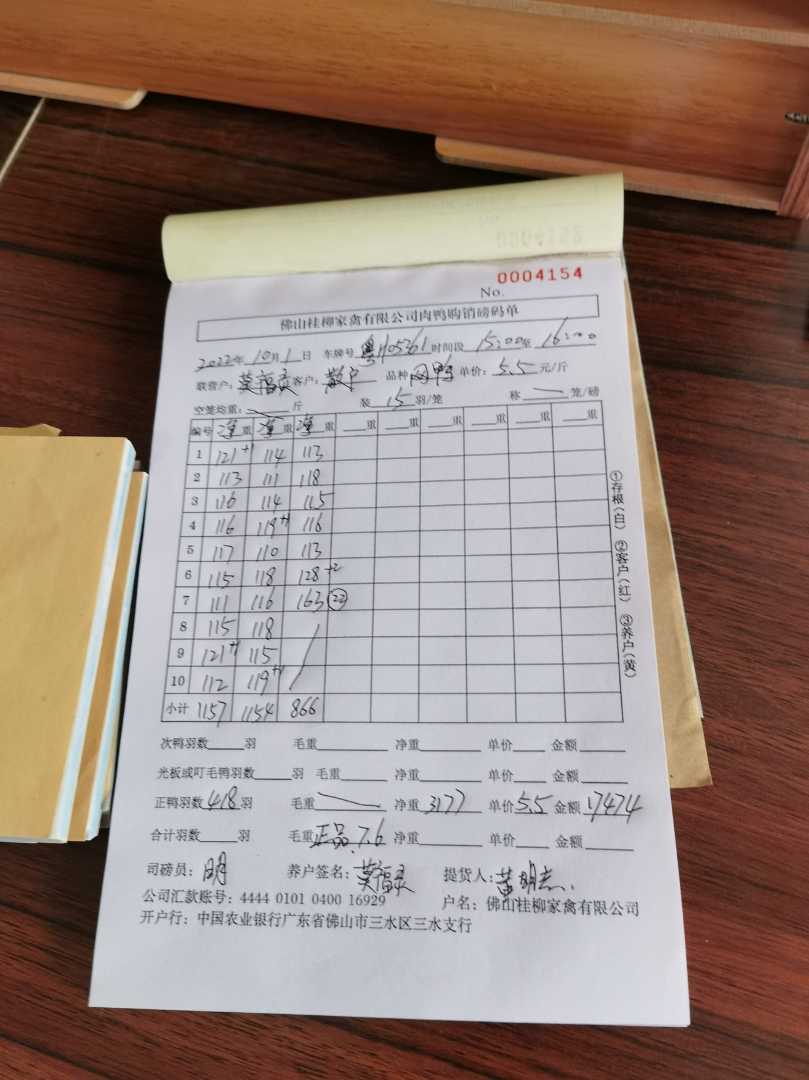 0004154
No.
佛山桂柳家禽有限公司肉鸭购销磅码单
2022年10月1日 车牌号 粤H05261 时间段 15:00至16:00
联营户: 莫福录 客户: 散户 品种 网鸭 单价: 5.5 元/斤
空笼均重: 斤 装 15 羽/笼 称 笼/磅
编号 净重 净重 净重 重 重 重 重 重 重 重
1 121+1 114 113
2 113 111 118
3 116 114 115
4 116 119+1 116
5 117 110 113
6 115 118 128+2
7 111 116 163 22
8 115 118
9 121+1 115
10 112 119+1
小计 1157 1154 866
①存根(白) ②客户(红) ③养户(黄)
次鸭羽数 羽 毛重 净重 单价 金额
光板或叮毛鸭羽数 羽 毛重 净重 单价 金额
正鸭羽数 418 羽 毛重 净重 3177 单价 5.5 金额 17474
合计羽数 羽 毛重 正品 7.6 净重 单价 金额
司磅员: 明 养户签名: 莫福录 提货人: 黄明志
公司汇款账号: 4444 0101 0400 16929 户名: 佛山桂柳家禽有限公司
开户行: 中国农业银行广东省佛山市三水区三水支行